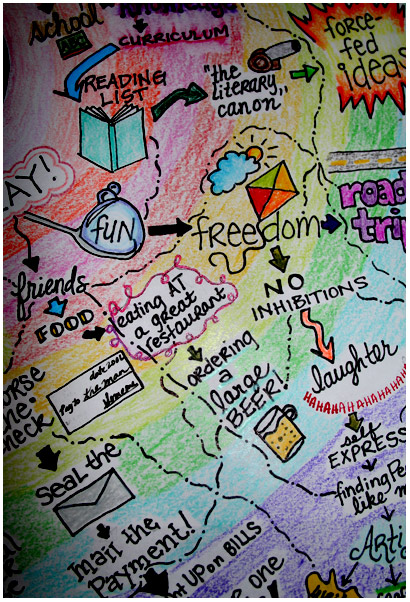 school
ABC
knowledge
CURRICULUM
READING
LIST
"the
literary
canon
force-
fed
ideas
AY!
fun
freedom
road
trip
friends
FOOD
eating AT
a great
restaurant
NO
INHIBITIONS
ordering
a
large
BEER!
laughter
HAHAHAHAHAHAHA
date 2002
Pay to the man
check
seal the
mail the
Payment!
self
EXPRESS
finding Pe
like m
Arti
UP on BILLS
one